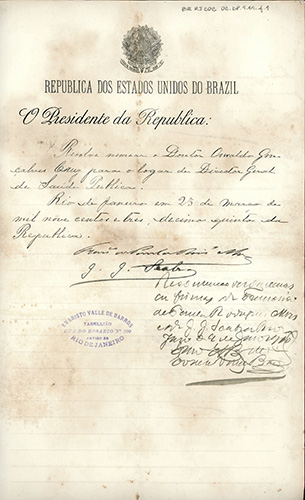 BR RJCOC OC.DP.
REPUBLICA DOS ESTADOS UNIDOS DO BRAZIL
O Presidente da Republica:
Resolve nomear o Doutor Oswaldo Gon-
calves Cruz para o logar de Director Geral
de Saude Publica.
Rio de Janeiro em 23 de Março de
mil nove centos e tres, decimo quinto da
Republica.
Francisco de Paula Rodrigues Alves
J. J. Seabra
Reconheço verdadeiras
as firmas de Francisco
de Paula Rodrigues Alves
e de J. J. Seabra. Rio
EVARISTO VALLE DE BARROS
TABELLIÃO
RUA DO ROSARIO Nº 100
RIO DE JANEIRO